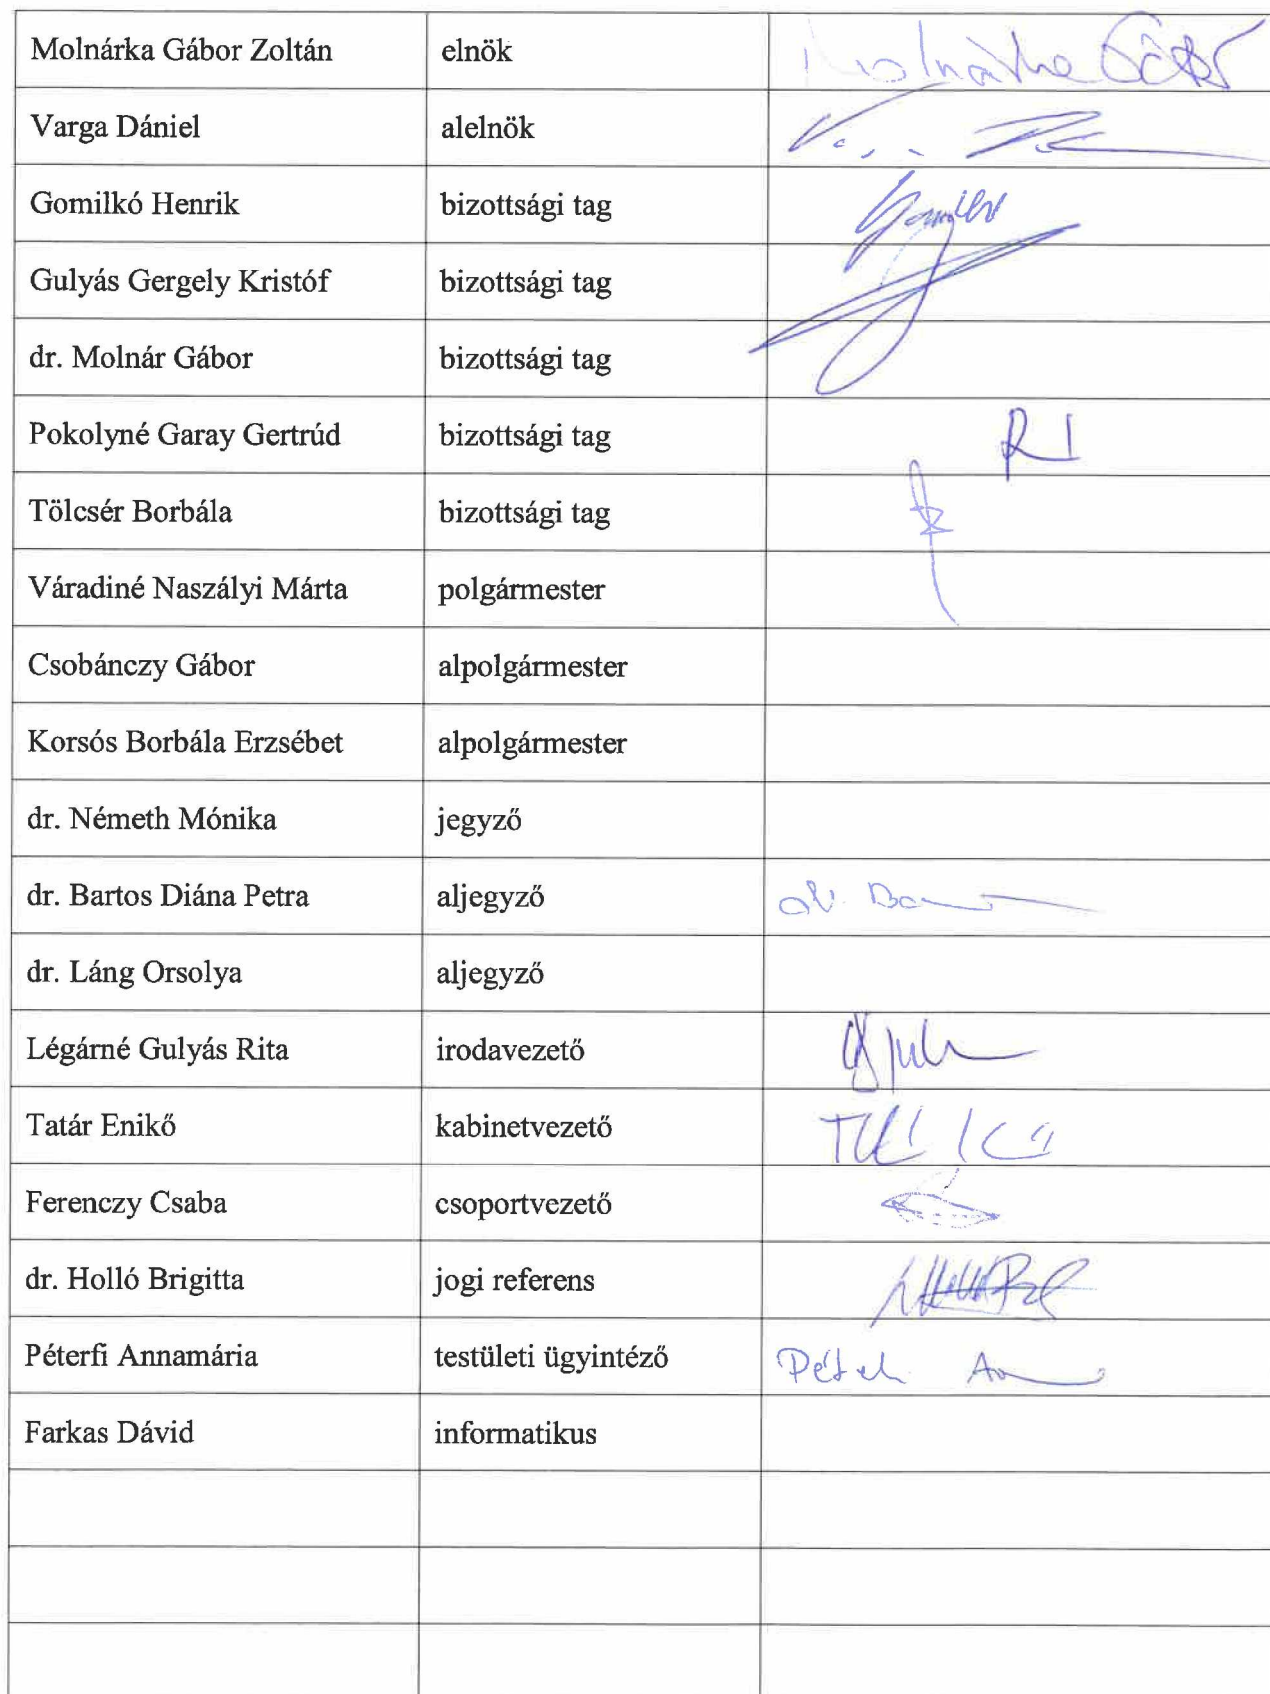 Molnárka Gábor Zoltán elnök Molnárka Gábor
Varga Dániel alelnök
Gomilkó Henrik bizottsági tag
Gulyás Gergely Kristóf bizottsági tag
dr. Molnár Gábor bizottsági tag
Pokolyné Garay Gertrúd bizottsági tag
Tölcsér Borbála bizottsági tag
Váradiné Naszályi Márta polgármester
Csobánczy Gábor alpolgármester
Korsós Borbála Erzsébet alpolgármester
dr. Németh Mónika jegyző
dr. Bartos Diána Petra aljegyző
dr. Láng Orsolya aljegyző
Légárné Gulyás Rita irodavezető
Tatár Enikő kabinetvezető
Ferenczy Csaba csoportvezető
dr. Holló Brigitta jogi referens
Péterfi Annamária testületi ügyintéző
Farkas Dávid informatikus